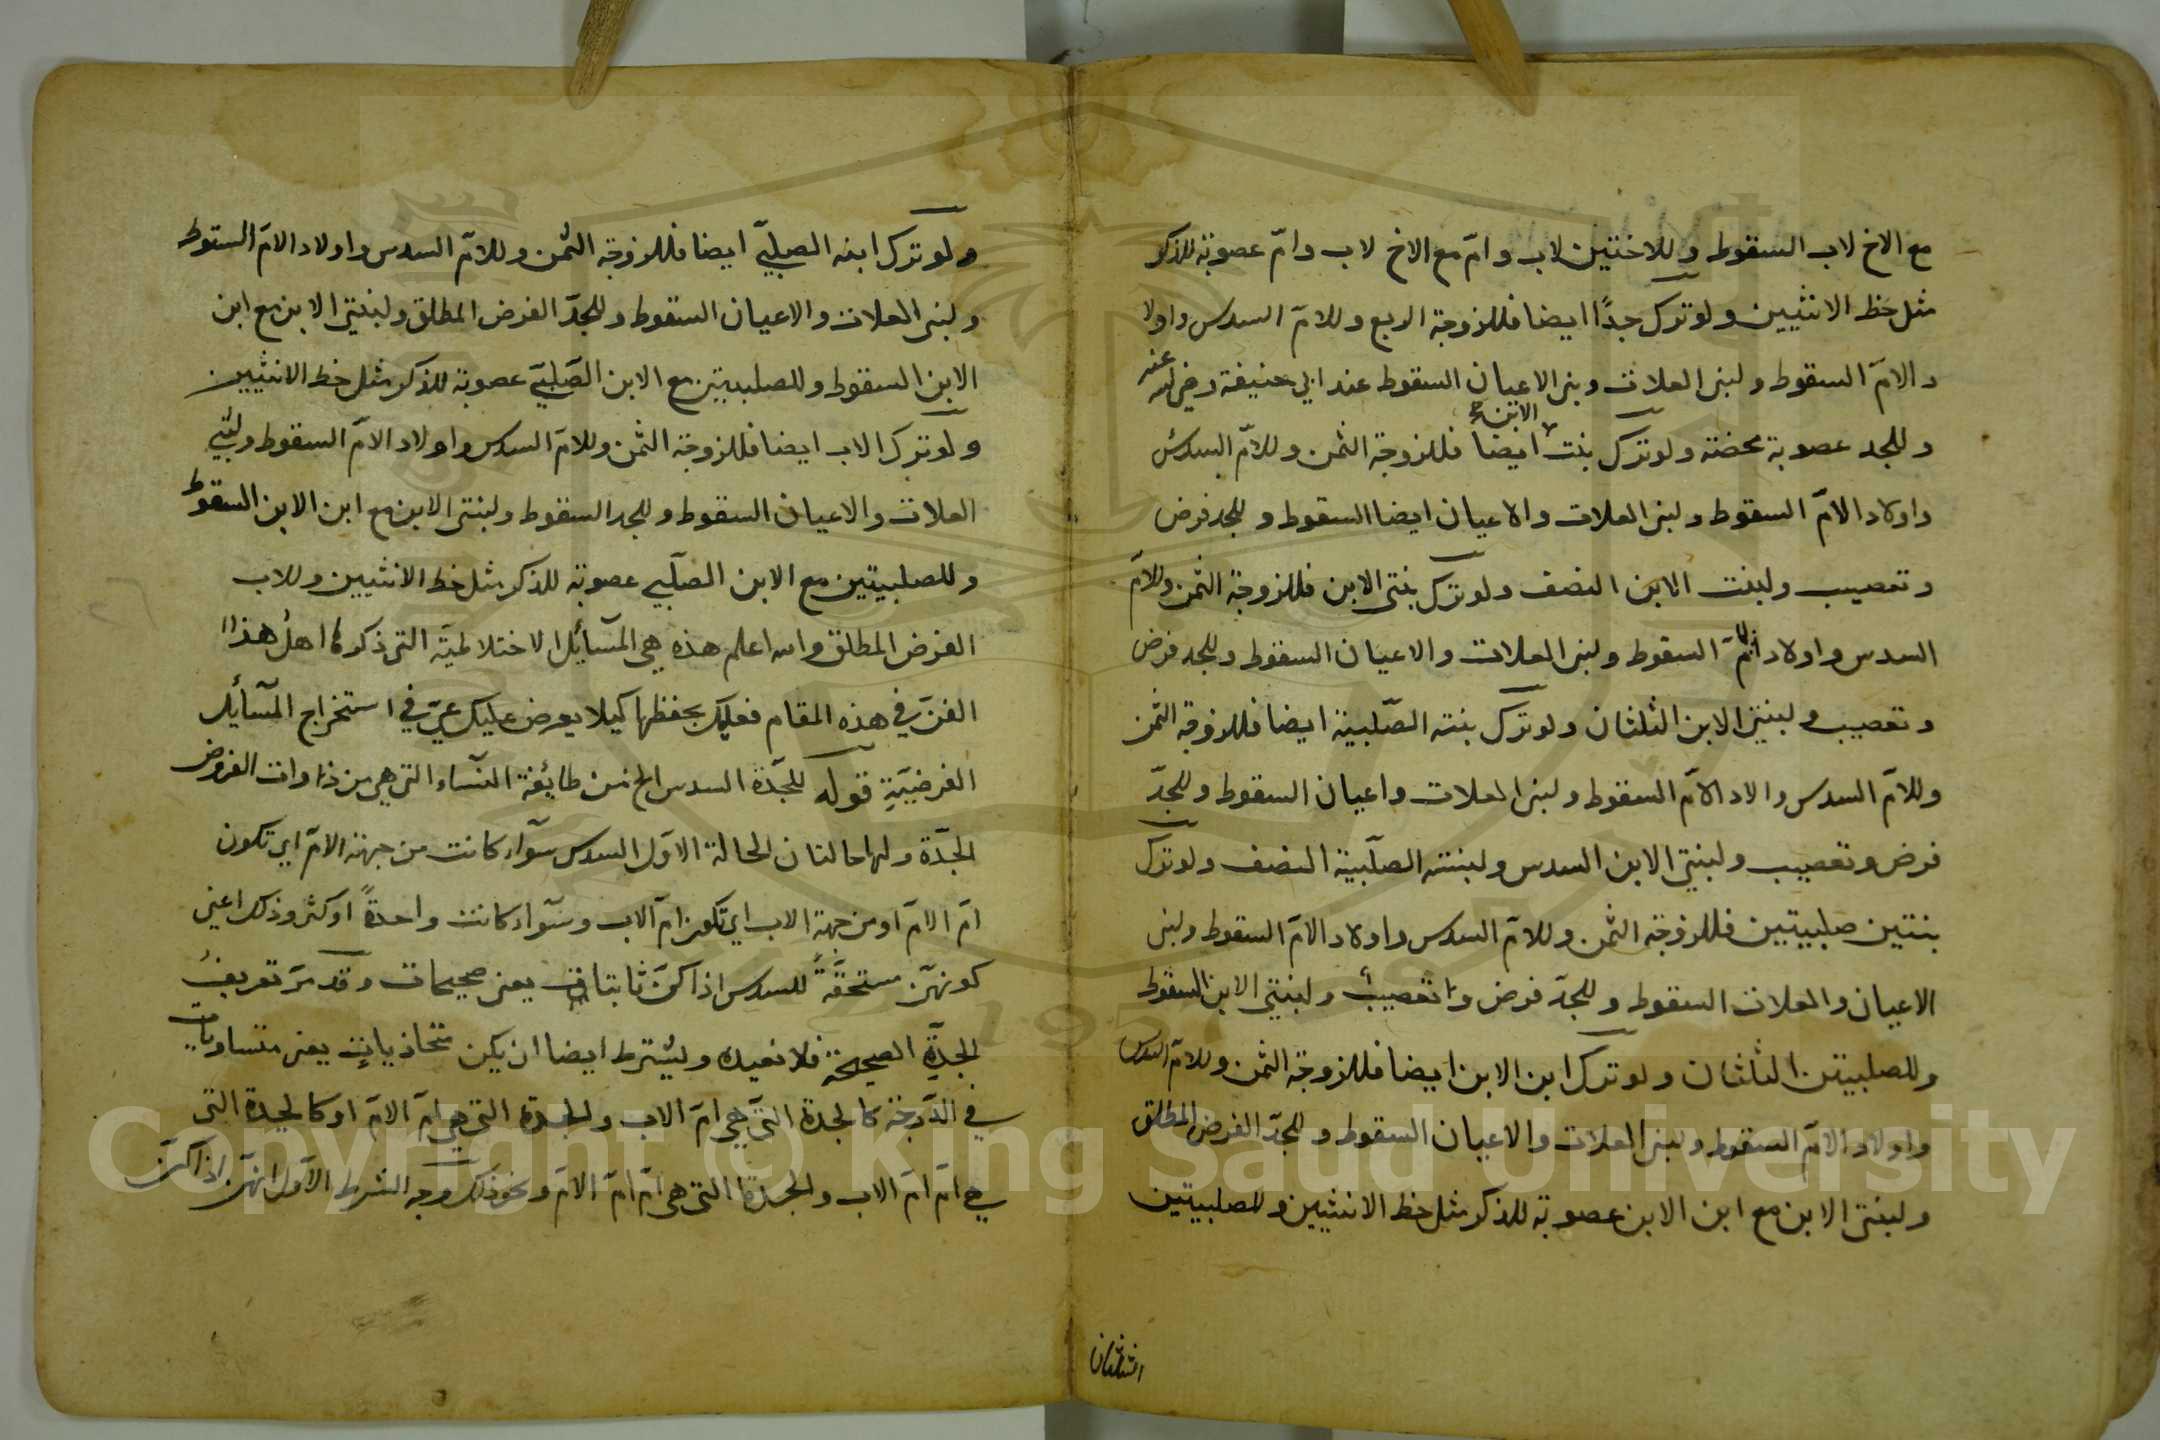 مع الاخ لاب السقوط وللاختين لاب وامّ مع الاخ لاب وامّ عصوبة للذكر
مثل حظ الانثيين ولو ترك جدًا ايضا فللزوجة الربع وللامّ السدس واولا
د الامّ السقوط ولبنى العلات وبنى الاعيان السقوط عند ابي حنيفة رضي الله عنه
وللجد عصوبة محضة ولو ترك بنت الابن ايضا فللزوجة الثمن وللامّ السدس
واولاد الامّ السقوط ولبنى العلات والاعيان ايضا السقوط وللجد فرض
وتعصيب ولبنت الابن النصف ولو ترك بنتى الابن فللزوجة الثمن وللامّ
السدس واولاد الامّ السقوط ولبنى العلات والاعيان السقوط وللجد فرض
وتعصيب ولبنتى الابن الثلثان ولو ترك بنته الصّلبية ايضا فللزوجة الثمن
وللامّ السدس والاد الامّ السقوط ولبنى العلات واعيان السقوط وللجدّ
فرض وتعصيب ولبنتى الابن السدس ولبنته الصلّبية النصف ولو ترك
بنتين صلبيتين فللزوجة الثمن وللامّ السدس واولاد الامّ السقوط ولبنى
الاعيان والعلات السقوط وللجدّ فرض وتعصيب ولبنتي الابن السقوط
وللصلبيتين الثلثان ولو ترك ابن الابن ايضا فللزوجة الثمن وللامّ السدس
واولاد الامّ السقوط ولبنى العلات والاعيان السقوط وللجدّ الفرض المطلق
ولبنتى الابن مع ابن الابن عصوبة للذكر مثل حظ الانثيين وللصلبيتين
الثلثان
ولو ترك ابنه الصلبيّ ايضا فللزوجة الثمن وللامّ السدس واولاد الامّ السقوط
ولبنى العلات والاعيان السقوط وللجدّ الفرض المطلق ولبنتي الابن مع ابن
الابن السقوط وللصلبيتين مع الابن الصّلبيّ عصوبة للذكر مثل حظ الانثيين
ولو ترك الاب ايضا فللزوجة الثمن وللامّ السدس واولاد الامّ السقوط ولبنى
العلات والاعيان السقوط وللجد السقوط ولبنتى الابن مع ابن الابن السقوط
وللصلبيتين مع الابن الصلّبي عصوبة للذكر مثل حظ الانثيين وللاب
الفرض المطلق والله اعلم هذه هي المسآئل الاختلاطيّة التى ذكرها اهل هذا
الفنّ في هذه المقام فعليك بحفظها كيلا يعرض عليك عيّ في استخراج المسآئل
الفرضيّةِ قوله للجدّة السدس الخ من طائفة النسآء التى هي من ذوات الفروض
الجدّة ولها حالتان الحالة الاول السدس سوآء كانت من جهة الامّ اي تكون
امّ الامّ او من جهة الاب اي تكون امّ الاب وسوآء كانت واحدةً او كثر وذلك اعني
كونهنّ مستحقّةً للسدس اذا كنّ ثابتات يعنى صحيحات وقد مرّ تعريف
الجدّةِ الصحيحة فلا نعيده ويشترط ايضا ان يكن متحاذيات يعنى متساويات
في الدّرجة كالجدة التى هي امّ الاب والجدة التى هي امّ الامّ او كالجدة التى
هي امّ امّ الاب والجدة التى هي امّ امّ الامّ ونحو ذلك وجه الشرط الاوّل انهنّ اذا كنّ